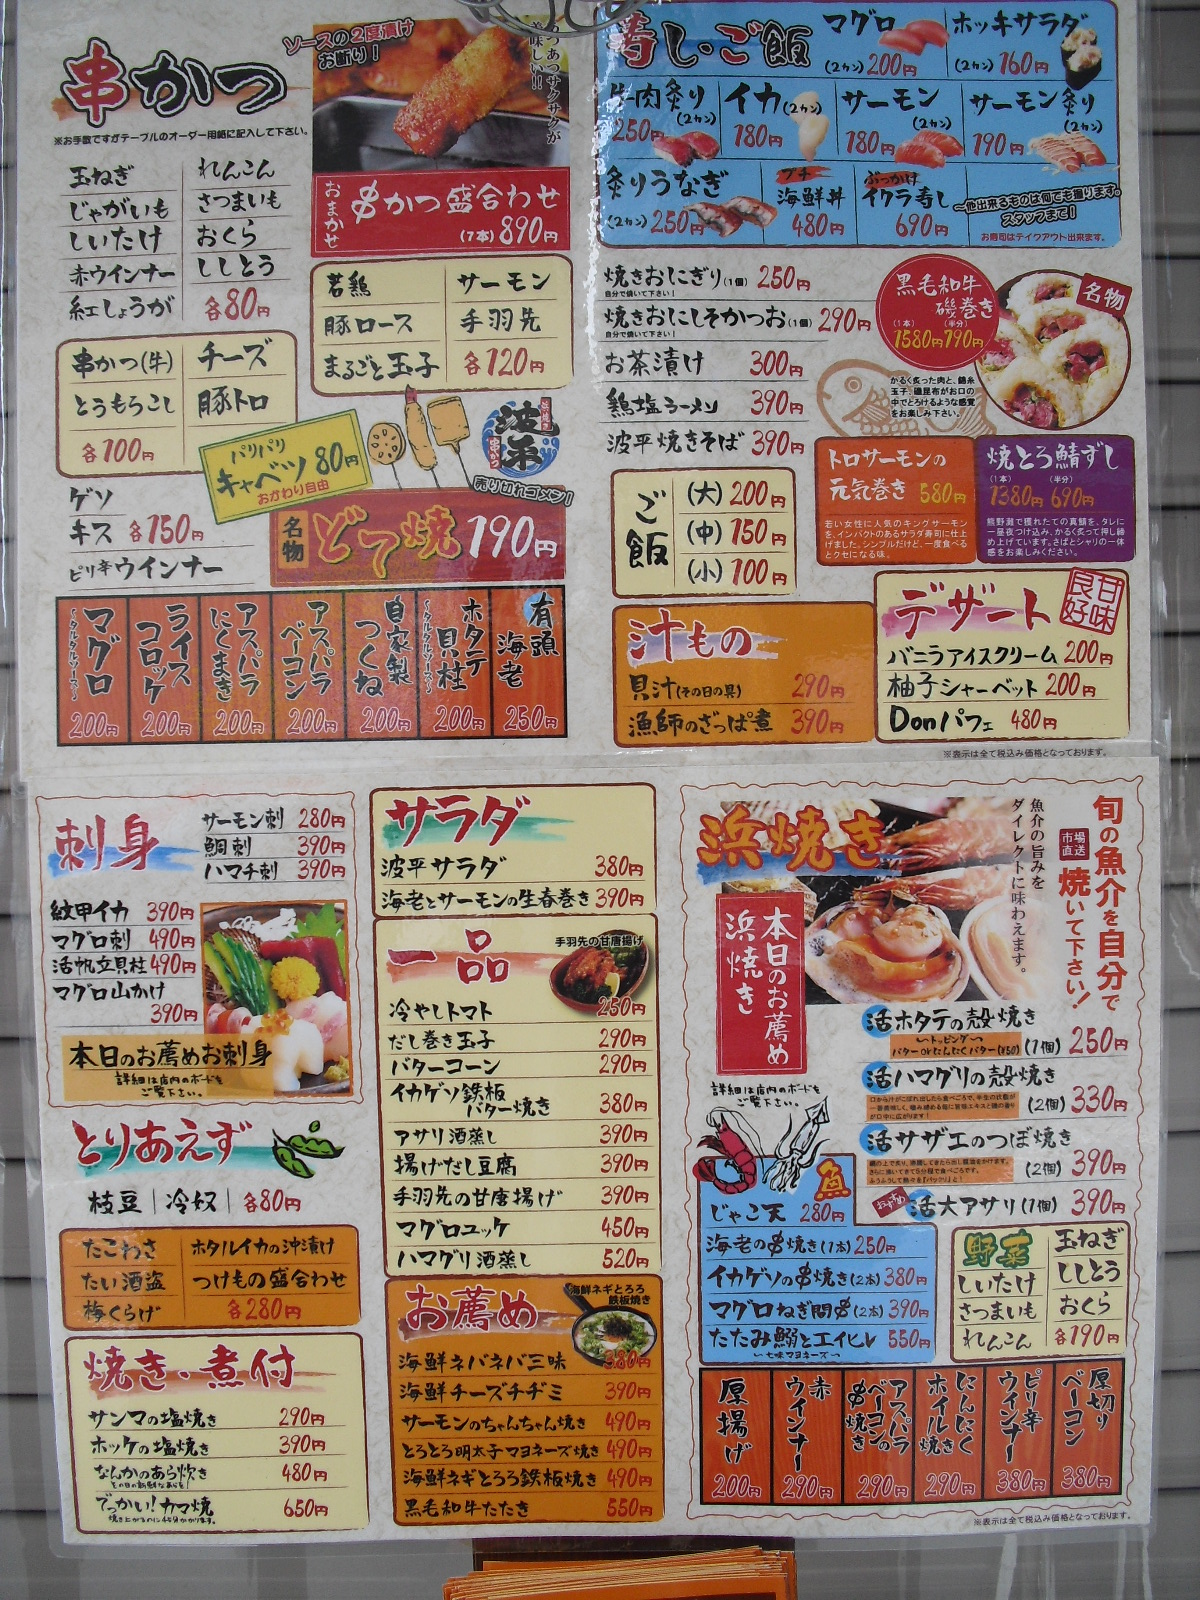 串かつ
ソースの2度漬け
お断り!
※お手数ですがテーブルのオーダー用紙に記入して下さい。
あつあつサクサクが
美味しい!!
玉ねぎ
じゃがいも
しいたけ
赤ウインナー
紅しょうが
れんこん
さつまいも
おくら
ししとう
各80円
おまかせ
串かつ盛合わせ
(7本)890円
若鶏
豚ロース
まるごと玉子
サーモン
手羽先
各120円
串かつ(牛)
とうもろこし
各100円
チーズ
豚トロ
パリパリ
キャベツ 80円
おかわり自由
波平
串かつ
売り切れゴメン!
ゲソ
キス 各150円
ピリ辛ウインナー
名物
どて焼 190円
マグロ
~タルタルソース~
200円
ライスコロッケ
200円
アスパラにくまき
200円
アスパラベーコン
200円
自家製つくね
200円
ホタテ貝柱
~タルタルソース~
200円
有頭海老
250円
寿し・ご飯
マグロ
(2カン)200円
ホッキサラダ
(2カン)160円
牛肉炙り
(2カン)
250円
イカ(2カン)
180円
サーモン
(2カン)
180円
サーモン炙り
(2カン)
190円
炙りうなぎ
(2カン)250円
プチ
海鮮丼
480円
ぶっかけ
イクラ寿し
690円
~他出来るものは何でも握ります。
スタッフまで!
お寿司はテイクアウト出来ます。
焼きおにぎり(1個) 250円
自分で焼いて下さい!
焼きおにしそかつお(1個) 290円
自分で焼いて下さい!
お茶漬け 300円
鶏塩ラーメン 390円
波平焼きそば 390円
黒毛和牛
磯巻き
(1本) (半分)
1580円790円
名物
かるく炙った肉と、錦糸
玉子、磯昆布がお口の
中でとろけるような感覚
をお楽しみ下さい。
ご飯
(大)200円
(中)150円
(小)100円
トロサーモンの
元気巻き 580円
若い女性に人気のキングサーモン
を、インパクトのあるサラダ寿司に仕上
げました。シンプルだけど、一度食べる
とクセになる味。
焼とろ鯖ずし
(1本) (半分)
1380円 690円
熊野灘で獲れたての真鯖を、タレに
一昼夜つけ込み、かるく炙って押し締
め上げています。さばとシャリの一体
感をお楽しみください。
汁もの
貝汁(その日の具) 290円
漁師のざっぱ煮 390円
デザート
甘味良好
バニラアイスクリーム 200円
柚子シャーベット 200円
Donパフェ 480円
※表示は全て税込み価格となっております。
刺身
サーモン刺 280円
鯛刺 390円
ハマチ刺 390円
紋甲イカ 390円
マグロ刺 490円
活帆立貝柱 490円
マグロ山かけ
390円
本日のお薦めお刺身
詳細は店内のボードを
ご覧下さい。
とりあえず
枝豆 冷奴 各80円
たこわさ
たい酒盗
梅くらげ
ホタルイカの沖漬け
つけもの盛合わせ
各280円
焼き・煮付
サンマの塩焼き 290円
ホッケの塩焼き 390円
なんかのあら炊き 480円
その日の新鮮なあらを!
でっかい!カマ焼 650円
焼き上がるのに45分かかります。
サラダ
波平サラダ 380円
海老とサーモンの生春巻き 390円
一品
手羽先の甘唐揚げ
冷やしトマト 250円
だし巻き玉子 290円
バターコーン 290円
イカゲソ鉄板
バター焼き 380円
アサリ酒蒸し 390円
揚げだし豆腐 390円
手羽先の甘唐揚げ 390円
マグロユッケ 450円
ハマグリ酒蒸し 520円
お薦め
海鮮ネギとろろ
鉄板焼き
海鮮ネバネバ三味 380円
海鮮チーズチヂミ 390円
サーモンのちゃんちゃん焼き 490円
とろとろ明太子マヨネーズ焼き 490円
海鮮ネギとろろ鉄板焼き 490円
黒毛和牛たたき 550円
浜焼き
魚介の旨みを
ダイレクトに味わえます。
旬の魚介を自分で
市場直送
焼いて下さい!
本日のお薦め
浜焼き
詳細は店内のボードを
ご覧下さい。
活ホタテの殻焼き
~トッピング~
バターorにんにくバター(¥50)
(1個) 250円
活ハマグリの殻焼き
(2個) 330円
活サザエのつぼ焼き
(2個) 390円
おすすめ
活大アサリ(1個) 390円
魚
じゃこ天 280円
海老の串焼き(1本) 250円
イカゲソの串焼き(2本) 380円
マグロねぎ間串(2本) 390円
たたみ鰯とエイヒレ 550円
~七味マヨネーズ~
野菜
しいたけ
さつまいも
れんこん
玉ねぎ
ししとう
おくら
各190円
厚揚げ
200円
赤ウインナー
290円
アスパラベーコンの串焼き
290円
にんにくホイル焼き
290円
ピリ辛ウインナー
380円
厚切りベーコン
380円
※表示は全て税込み価格となっております。